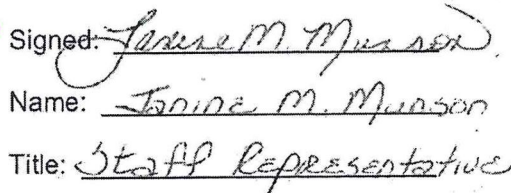 Signed: Janine M. Munson
Name: Janine M. Munson
Title: Staff Representative